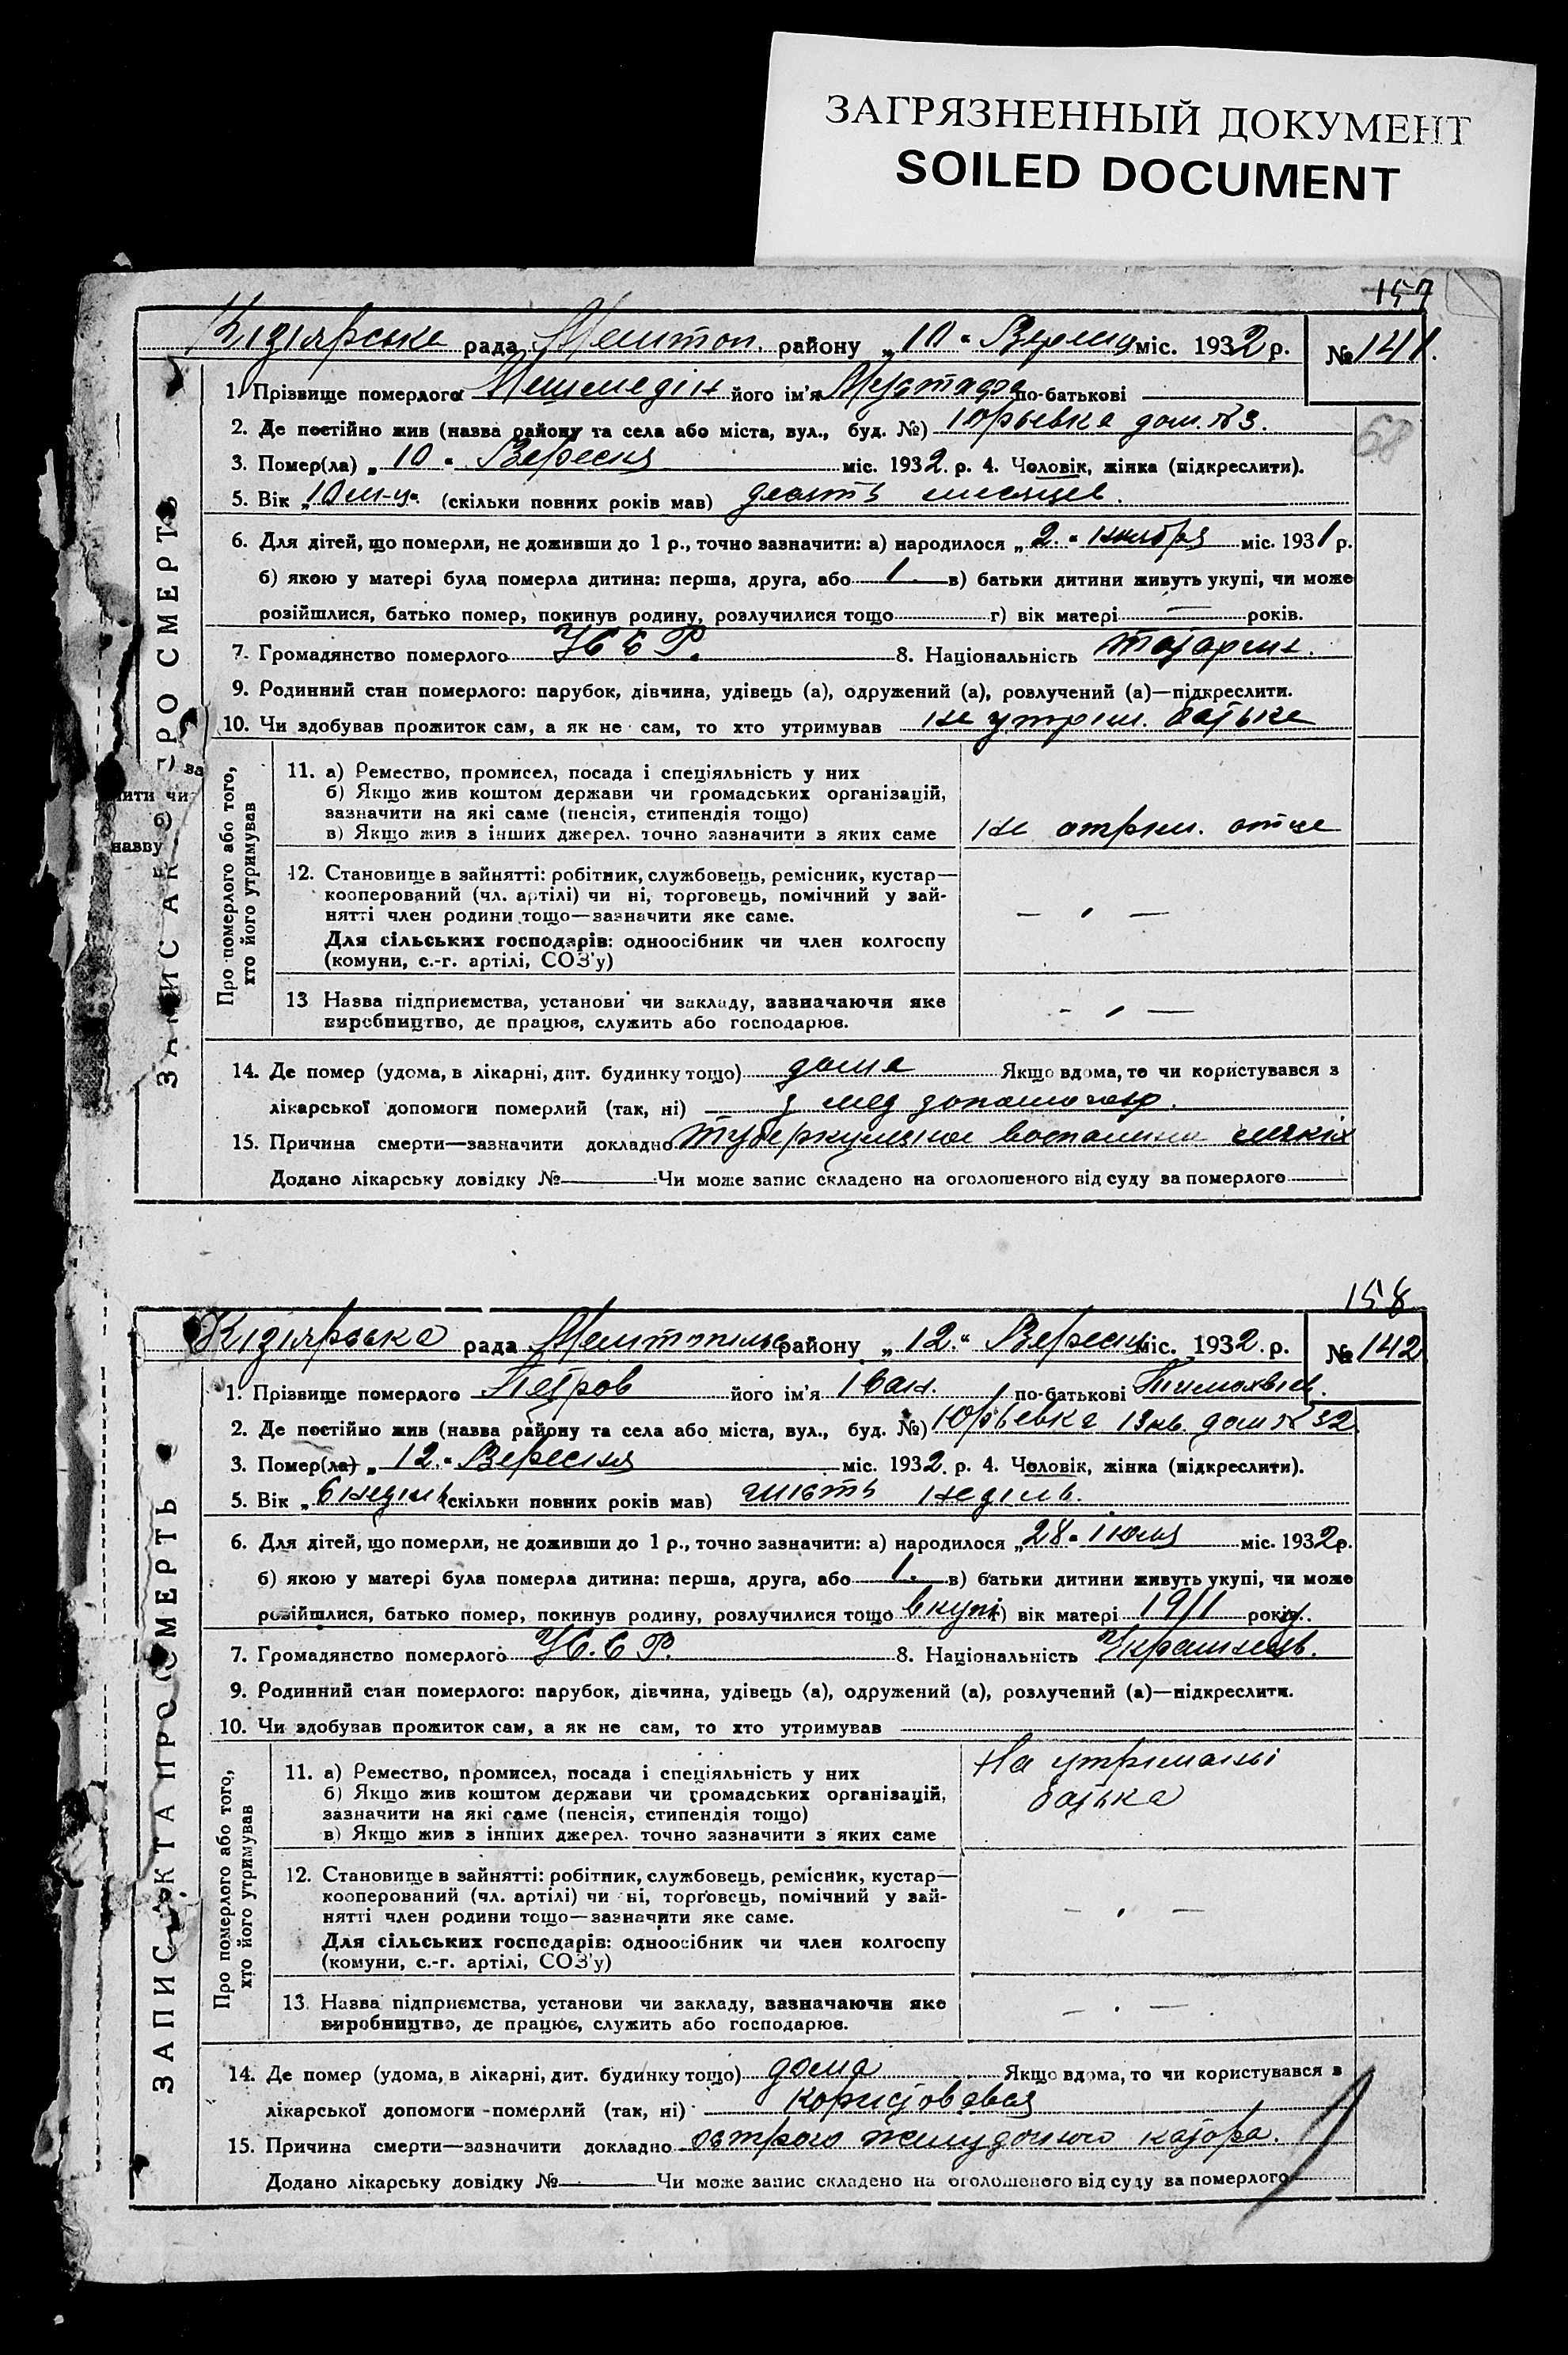 ЗАГРЯЗНЕННЫЙ ДОКУМЕНТ
SOILED DOCUMENT
157
Кізіярська рада Мелітоп. району „10“ Вересня міс. 1932 р. № 141.
1. Прізвище померлого його ім'я Мустафа по-батькові —
2. Де постійно жив (назва району та села або міста, вул., буд. №) Юрьевка дом. № 3.
68
3. Помер(ла) „10“ Вересня міс. 1932. р. 4. Чоловік, жінка (підкреслити).
5. Вік „10 м-ц. (скільки повних років мав) десять месяцев.
6. Для дітей, що померли, не доживши до 1 р., точно зазначити: а) народилося „2.“ ноября міс. 1931 р.
б) якою у матері була померла дитина: перша, друга, або 1. в) батьки дитини живуть укупі, чи може
розійшлися, батько помер, покинув родину, розлучилися тощо г) вік матері — років.
7. Громадянство померлого 8. Національність татарин.
9. Родинний стан померлого: парубок, дівчина, удівець (а), одружений (а), розлучений (а)—підкреслити.
10. Чи здобував прожиток сам, а як не сам, то хто утримував на утрим. батька
ЗАПИС АКТА ПРО СМЕРТЬ
за
чи
б)
назву
Про померлого або того, хто його утримував
11. а) Ремество, промисел, посада і спеціяльність у них
б) Якщо жив коштом держави чи громадських організацій,
зазначити на які саме (пенсія, стипендія тощо)
в) Якщо жив з інших джерел. точно зазначити з яких саме на отрим. отца
12. Становище в зайнятті: робітник, службовець, ремісник, кустар—
кооперований (чл. артілі) чи ні, торговець, помічний у зай-
нятті член родини тощо—зазначити яке саме. — „ —
Для сільських господарів: одноосібник чи член колгоспу
(комуни, с.-г. артілі, СОЗ'у)
13 Назва підприємства, установи чи закладу, зазначаючи яке
виробництво, де працює, служить або господарює. — „ —
14. Де помер (удома, в лікарні, дит. будинку тощо) дома Якщо вдома, то чи користувався з
лікарської допомоги померлий (так, ні) з мед допомогою.
15. Причина смерти—зазначити докладно туберкулезное воспаление легких
Додано лікарську довідку № — Чи може запис складено на оголошеного від суду за померлого —
158
Кізіярська рада Мелітопільс району „12.“ Вересня міс. 1932. р. № 142
1. Прізвище померлого Петров його ім'я Іван. по-батькові Тимохвієв.
2. Де постійно жив (назва району та села або міста, вул., буд. №) Юрьевка 13 кв. дом № 32
3. Помер(ла) „12.“ Вересня міс. 1932. р. 4. Чоловік, жінка (підкреслити).
5. Вік „6 неділь (скільки повних років мав) шість неділь.
6. Для дітей, що померли, не доживши до 1 р., точно зазначити: а) народилося „28“ Июля міс. 1932 р.
б) якою у матері була померла дитина: перша, друга, або 1. в) батьки дитини живуть укупі, чи може
розійшлися, батько помер, покинув родину, розлучилися тощо вкупі г) вік матері 1911 років.
7. Громадянство померлого 8. Національність Украинець.
9. Родинний стан померлого: парубок, дівчина, удівець (а), одружений (а), розлучений (а)—підкреслити.
10. Чи здобував прожиток сам, а як не сам, то хто утримував
ЗАПИС АКТА ПРО СМЕРТЬ
Про померлого або того, хто його утримував
11. а) Ремество, промисел, посада і спеціяльність у них На утриманні
б) Якщо жив коштом держави чи громадських організацій, батька
зазначити на які саме (пенсія, стипендія тощо)
в) Якщо жив з інших джерел. точно зазначити з яких саме
12. Становище в зайнятті: робітник, службовець, ремісник, кустар—
кооперований (чл. артілі) чи ні, торговець, помічний у зай-
нятті член родини тощо—зазначити яке саме. — „ —
Для сільських господарів: одноосібник чи член колгоспу
(комуни, с.-г. артілі, СОЗ'у)
13. Назва підприємства, установи чи закладу, зазначаючи яке
виробництво, де працює, служить або господарює. — „ —
14. Де помер (удома, в лікарні, дит. будинку тощо) дома Якщо вдома, то чи користувався з
лікарської допомоги померлий (так, ні) користовався
15. Причина смерти—зазначити докладно острого желудочного катара.
Додано лікарську довідку № — Чи може запис складено на оголошеного від суду за померлого —